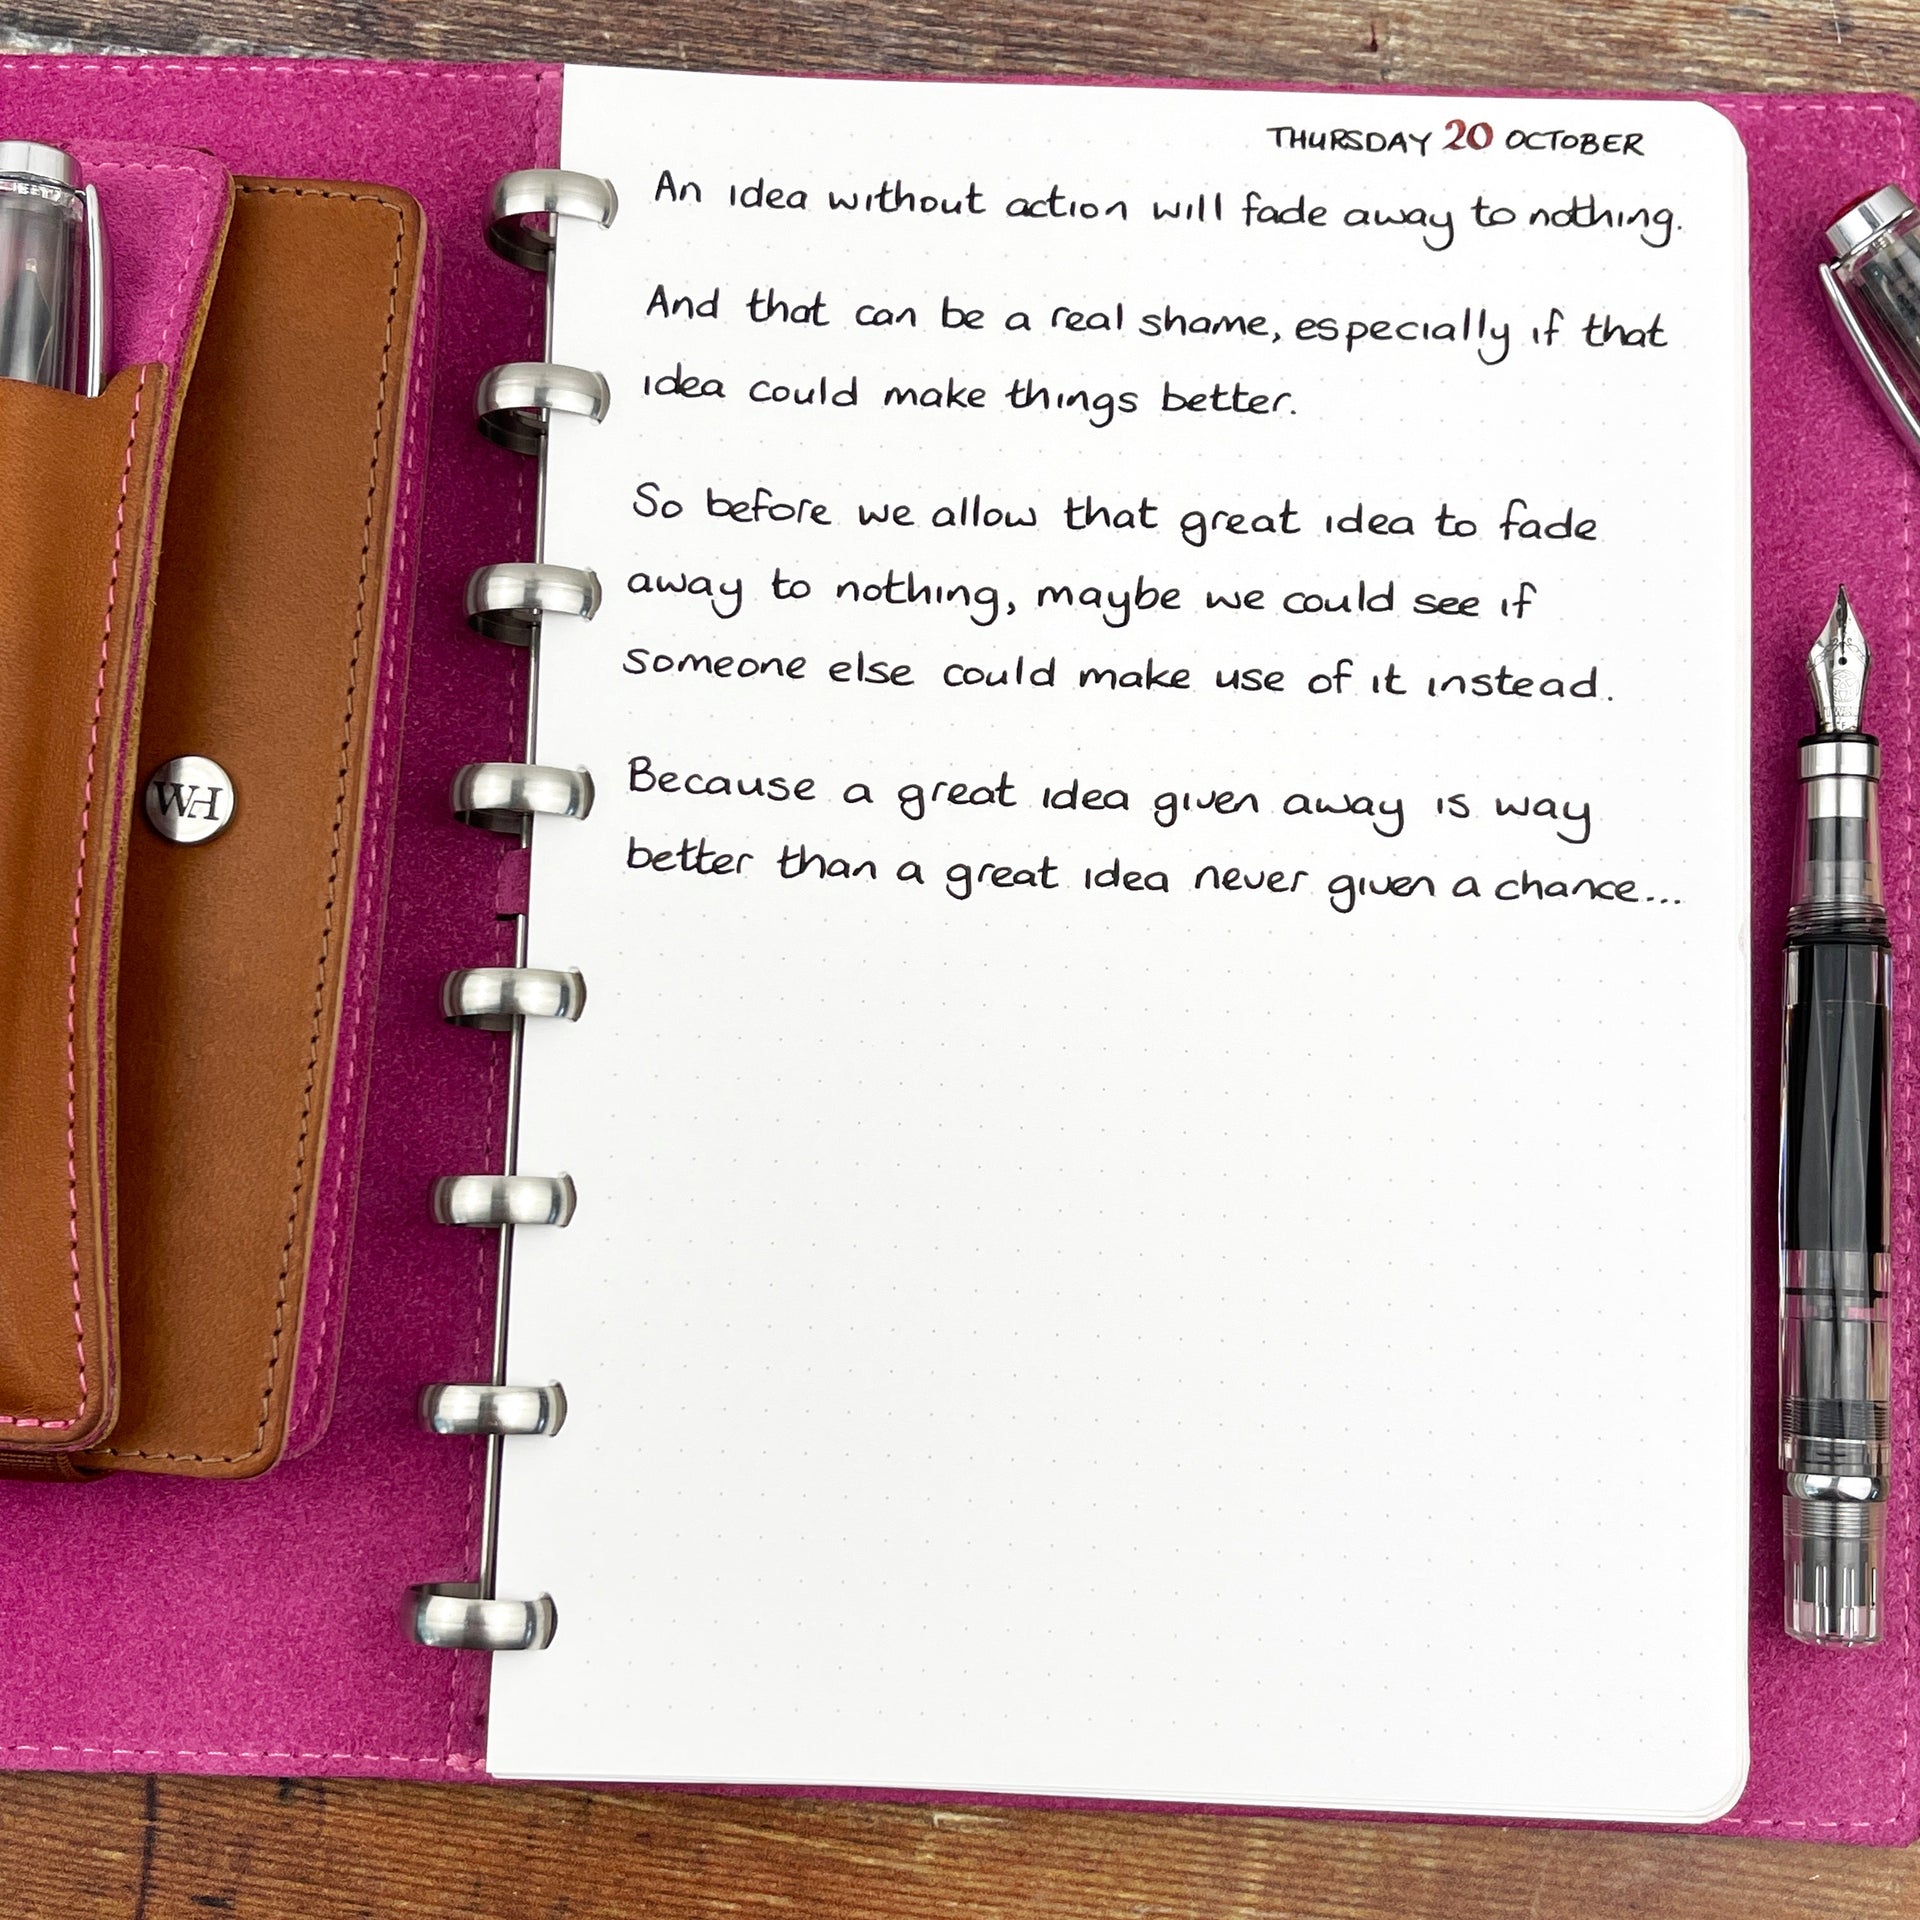 THURSDAY 20 OCTOBER
An idea without action will fade away to nothing.
And that can be a real shame, especially if that
idea could make things better.
So before we allow that great idea to fade
away to nothing, maybe we could see if
someone else could make use of it instead.
Because a great idea given away is way
better than a great idea never given a chance...
WH